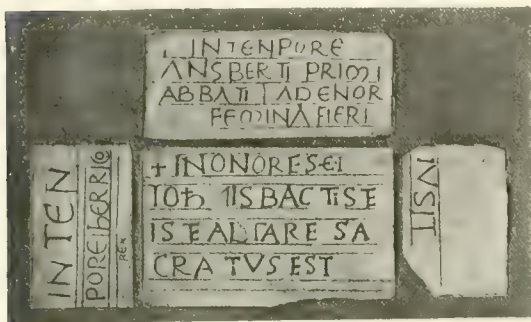 INTENPORE
ANSBERTI PRIMI
ABBATI TADENOR
FEMINA FIERI
INTEN
POREBERRIG
REX
+ INONORESCI
IOħ NISBACTISE
ISTE ALTARE SA
CRATVS EST
IVSIT